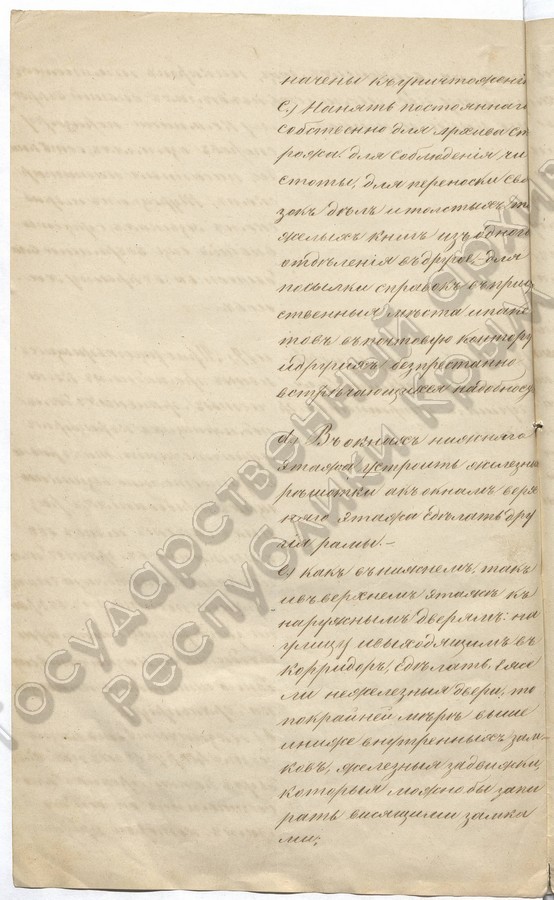 начены къ уничтоженію
с.) Нанять постояннаго
собственно для Архива ст
рожа для соблюденія, чи
стоты, для переноски свя
зокъ дѣлъ и толстыхъ, тя
желыхъ книгъ изъ одного
отдѣленія въ другое, для
посылки справокъ въ прису
ственныя мѣста и паке
товъ въ почтовую контору
и другихъ безпрестанно
встрѣчающихся надобнос
d) Въ окнахъ нижняго
этажа устроить желѣзны
рѣшотки а къ окнамъ верх
няго этажа сдѣлать дру
гія рамы.–
е) какъ въ нижнемъ, такъ
и въ верхнемъ этажѣ къ
наружнымъ дверямъ: на
улицу и выходящимъ въ
корридоръ, сдѣлать, еже
ли не желѣзныя двери, то
покрайней мѣрѣ выше
и ниже внутренныхъ зам-
ковъ, желѣзныя задвижки,
которыя можно бы запи
рать висящими замка
ми;
Государственный архив
Республики Крым